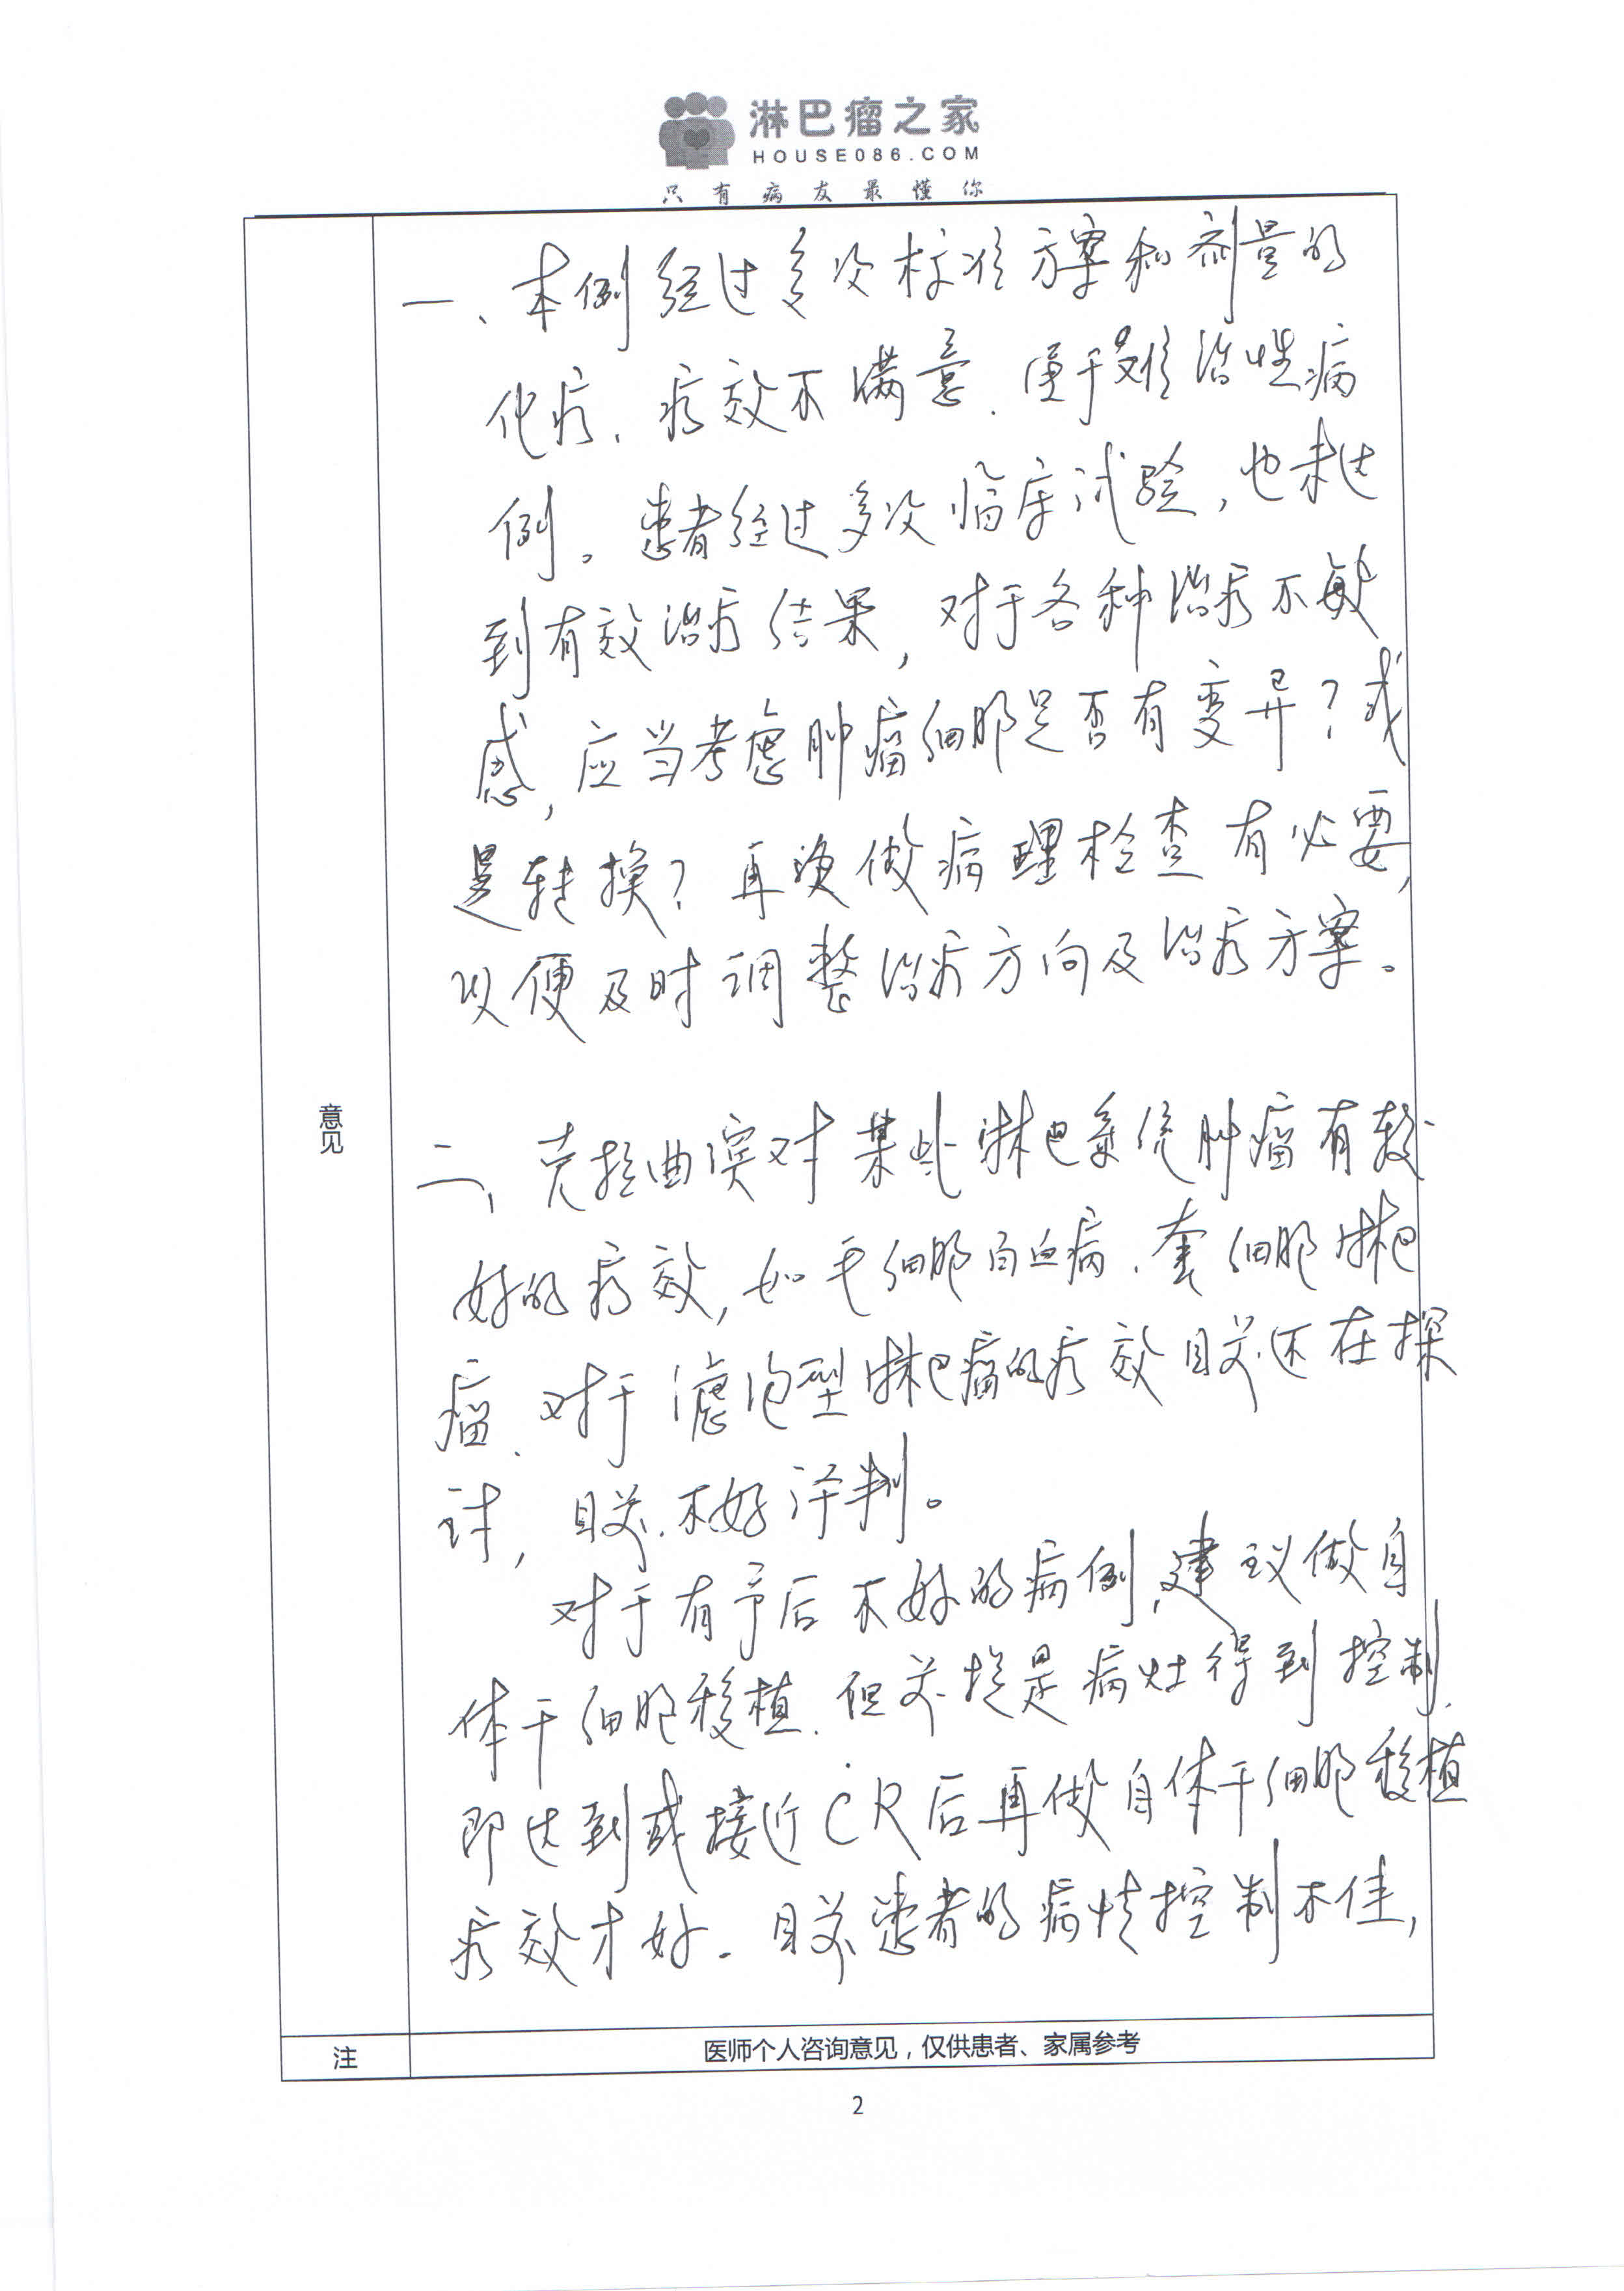 淋巴瘤之家
HOUSE086.COM
只有病友最懂你
一、本例经过多次标准方案和剂量的
化疗、疗效不满意.属于难治性病
例。患者经过多次临床试验,也未达
到有效治疗结果,对于各种治疗不敏
感,应当考虑肿瘤细胞是否有变异?或
是转换?再次做病理检查有必要,
以便及时调整治疗方向及治疗方案。
意见
二、克拉曲滨对某些淋巴系统肿瘤有较
好的疗效,如毛细胞白血病.套细胞淋巴
瘤.对于滤泡型淋巴瘤的疗效目前还在探
讨,目前不好评判。
对于有予后不好的病例,建议做自
体干细胞移植.但前提是病灶得到控制.
即达到或接近CR后再做自体干细胞移植
疗效才好.目前患者的病情控制不佳,
注
医师个人咨询意见,仅供患者、家属参考
2